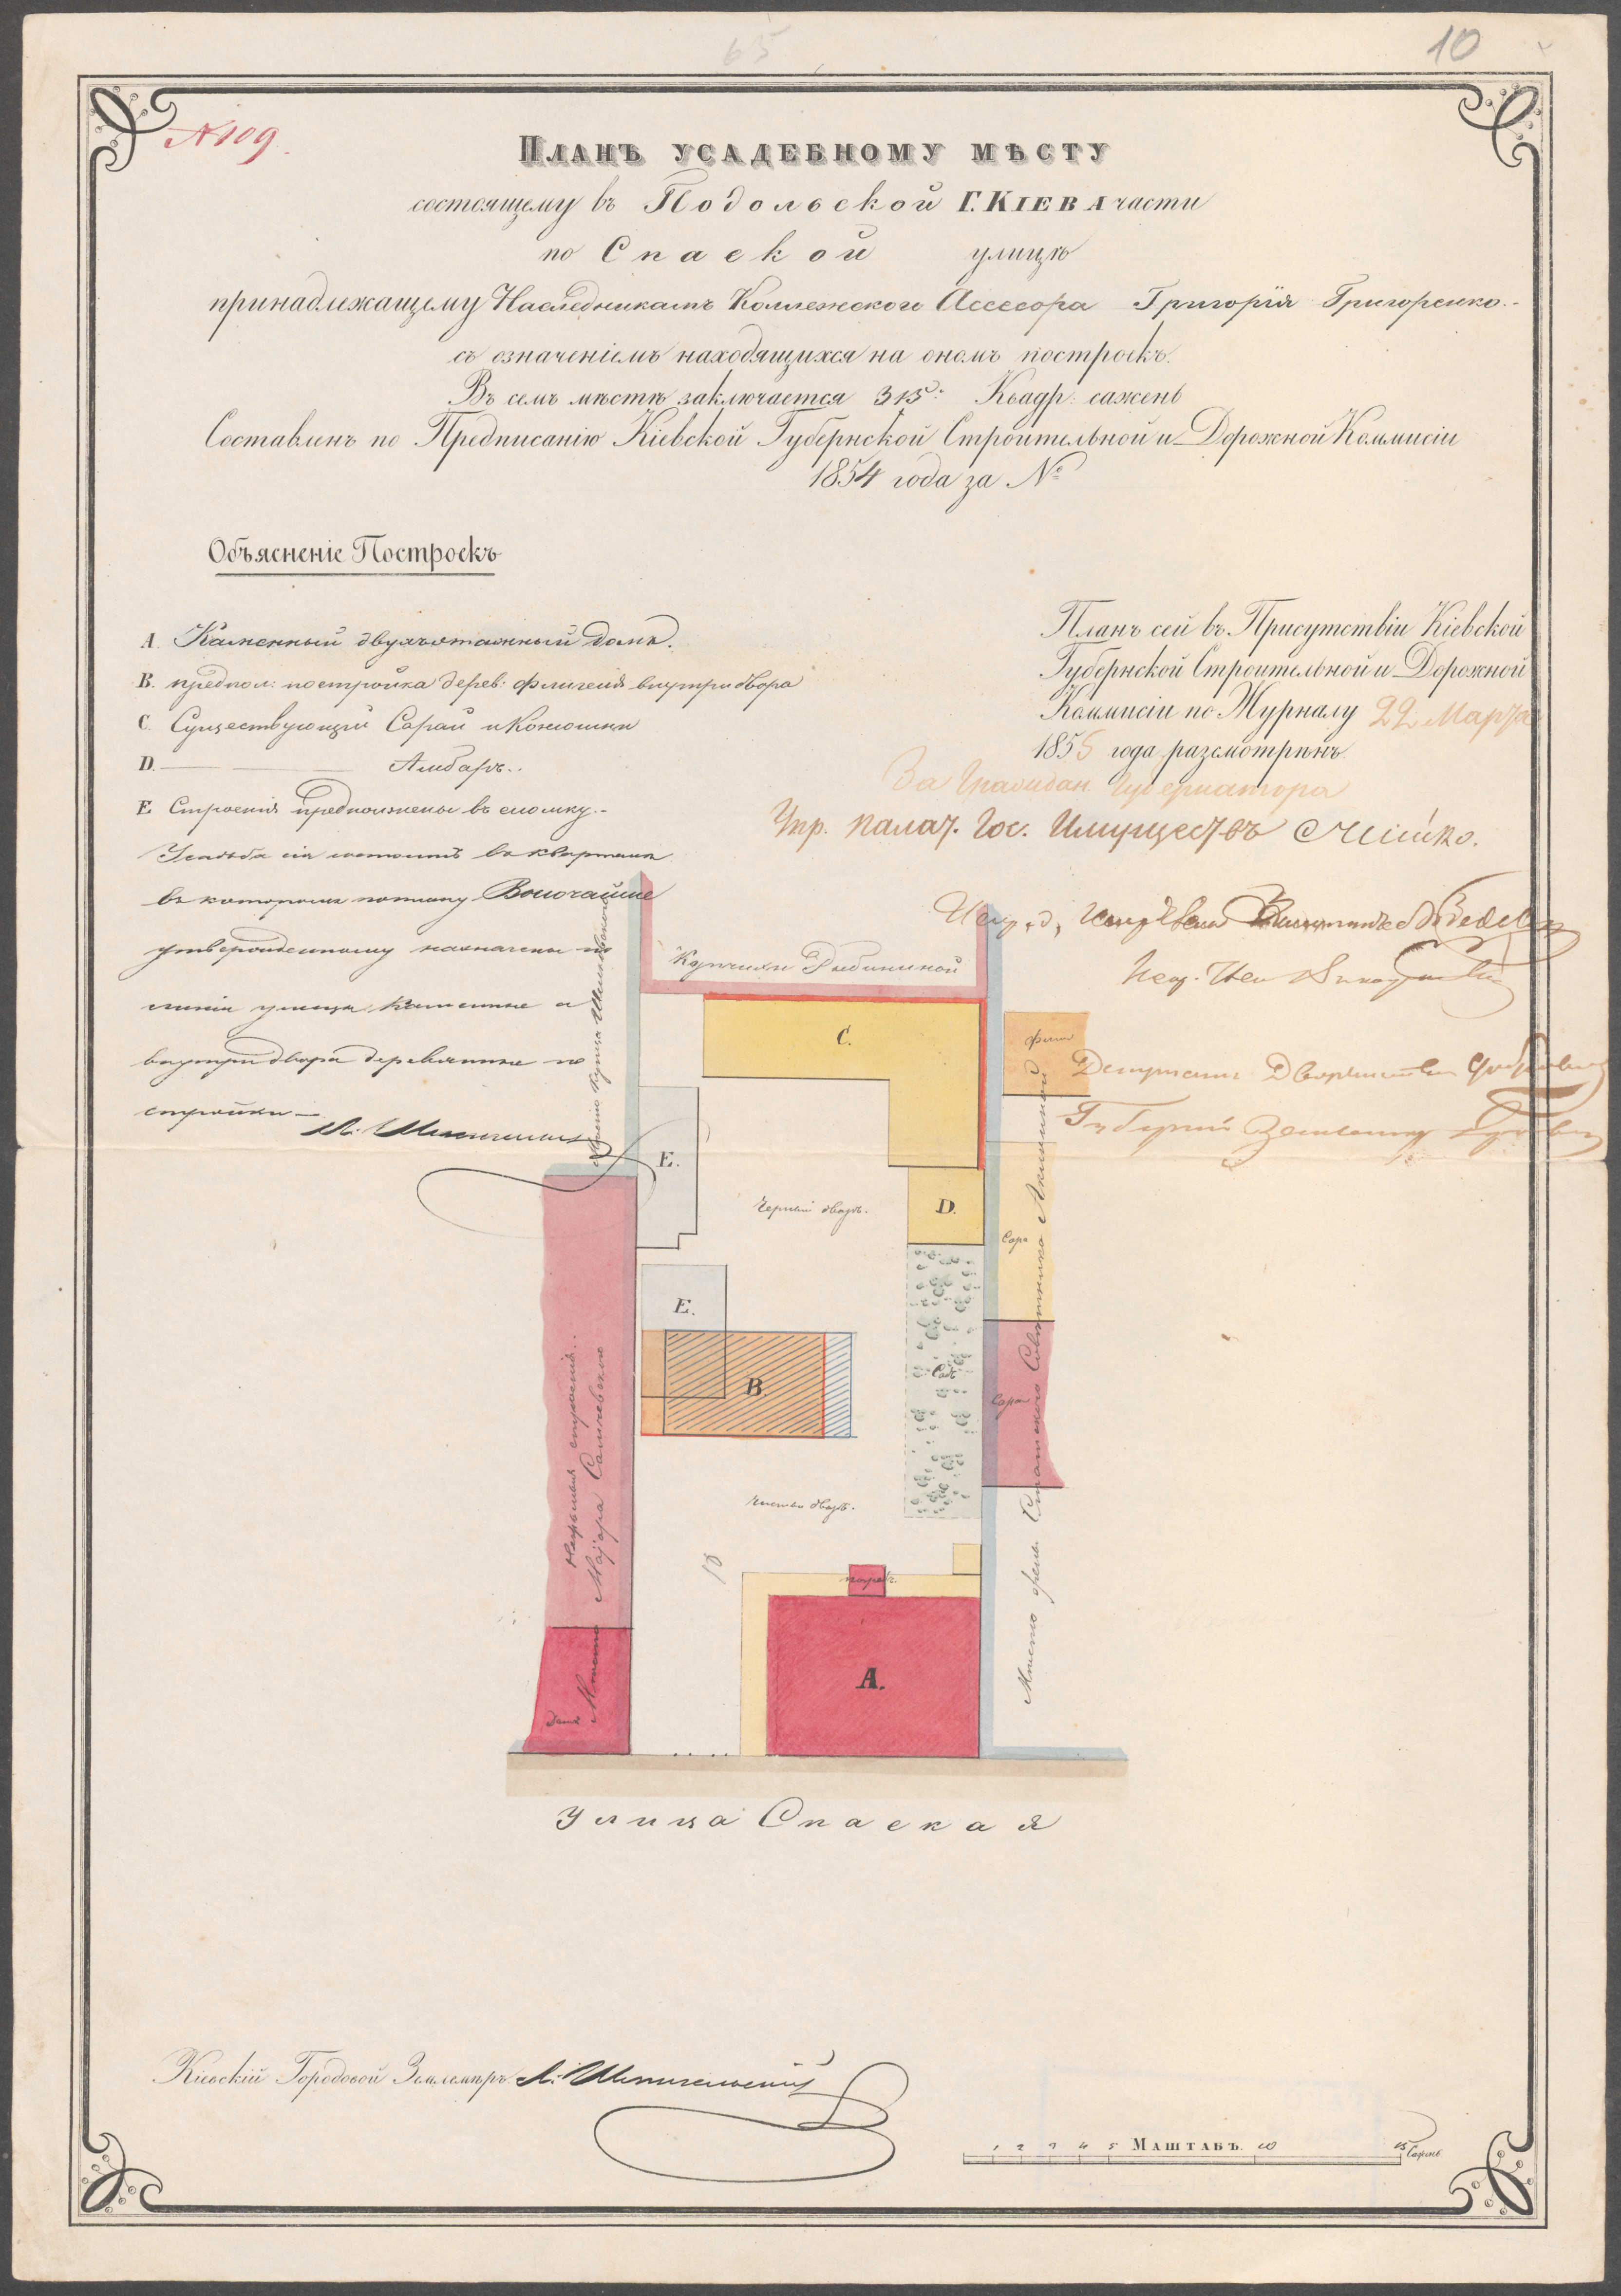 65
10
№ 109.
Планъ усадебному мѣсту
состоящему въ Подольской Г. Кіева части
по Спаской улицѣ
принадлежащему Наследникамъ Коллежского Ассесора Григорія Григоренко.-
съ означеніемъ находящихся на ономъ построекъ.
Въ семъ мѣстѣ заключается 315. Квадр: сажень
Составленъ по Предписанію Кіевской Губернской Строительной и Дорожной Коммисіи
1854 года за №
Объясненіе Построекъ
A. Каменный двухъэтажный домъ.
B. предпол: постройка дерев: флигеля внутри двора
C. Существующій Сарай и Конюшни
D. — — Амбаръ..
E Строенія предположены въ сломку.-
Усадьба сія состоитъ въ кварталѣ
въ которомъ по плану Высочайше
утвержденному назначены по
линіи улицы каменные а
внутри двора деревянные по
стройки —
Планъ сей въ Присутствіи Кіевской
Губернской Строительной и Дорожной
Коммисіи по Журналу 22 Марта
1855 года разсмотрѣнъ.
За Граждан. Губернатора
Упр. Палат. Гос. Имуществъ
Депутатъ Дворянства
Губерній Землемѣръ
Купчихи Рыбинкиной
Место Купца
C.
флиг
E.
Черный дворъ.
D.
Сара
E.
B.
Садъ
Сарай
Нежилыя строенія..
Место Маіора
Чистый дворъ.
10
Место Статского Совѣтника
погреб.
A.
домъ
Улица Спаская
Кіевскій Городовой Землемѣръ Л.
1 2 3 4 5 Маштабъ. 10 15 Сажень